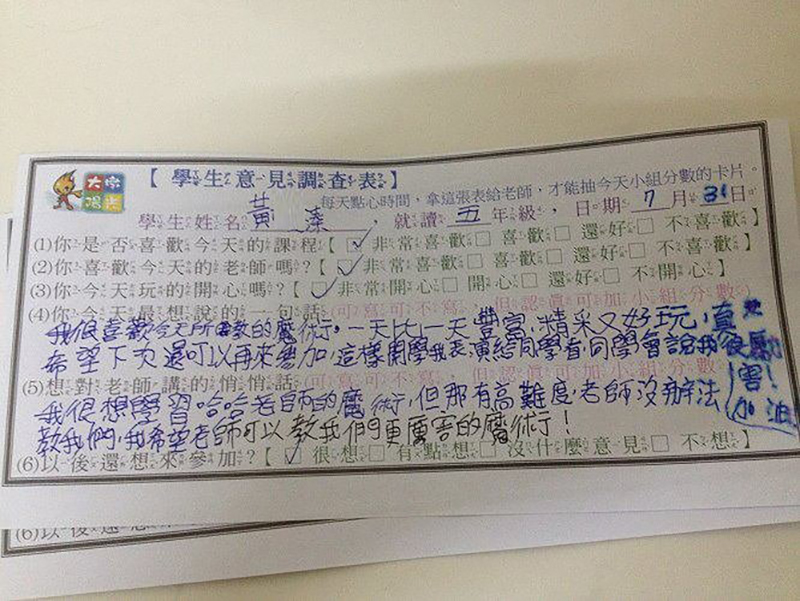 大家
【學生意見調查表】
每天點心時間，拿這張表給老師，才能抽今天小組分數的卡片。
學生姓名 黃 蓁 ，就讀 五 年級，日期 7 月 31 日
(1)你是否喜歡今天的課程【☑非常喜歡□喜歡□還好□不喜歡】
(2)你喜歡今天的老師嗎?【☑非常喜歡□喜歡□還好□不喜歡】
(3)你今天玩的開心嗎?【☑非常開心□開心□還好□不開心】
(4)你今天最想說的一句話:(可寫可不寫，但認真可加小組分數)
我很喜歡今天所教的魔術行。一天比一天豐富、精采又好玩，真
希望下次還可以再來參加，這樣開學我表演給同學看，同學會說我很厲害!
(5)想對老師講的悄悄話:(可寫可不寫，但認真可加小組分數)
我很想學習哈哈老師的魔術行，但那有高難度，老師沒辦法
教我們，我希望老師可以教我們更厲害的魔術行!
加油
(6)以後還想來參加?【☑很想□有點想□沒什麼意見□不想】